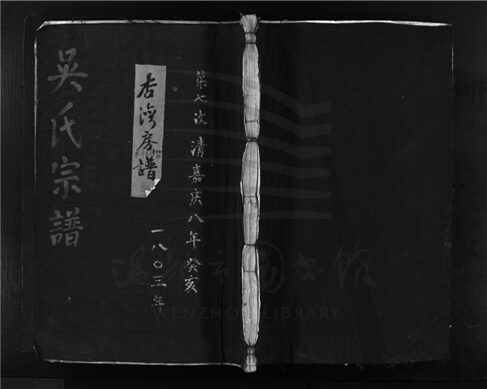 第七次 清嘉庆八年癸亥
一八〇三年
房譜
吴氏宗譜
温州市图书馆
WENZHOU LIBRARY